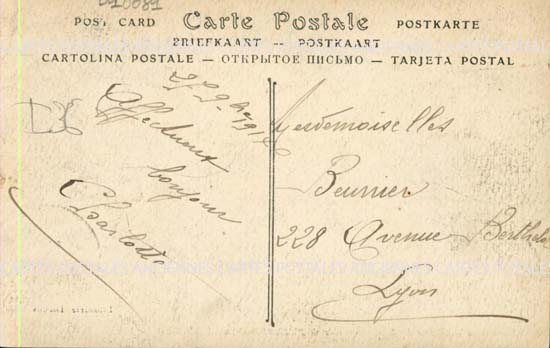 POST CARD Carte Postale POSTKARTE
BRIEFKAART -- POSTKAART
CARTOLINA POSTALE — ОТКРЫТОЕ ПИСЬМО — TARJETA POSTAL
D36
27 9bre 191
Affectueux
bonjour
Charlotte
Mesdemoiselles
Beurrier
228 Avenue Berthelo
Lyon